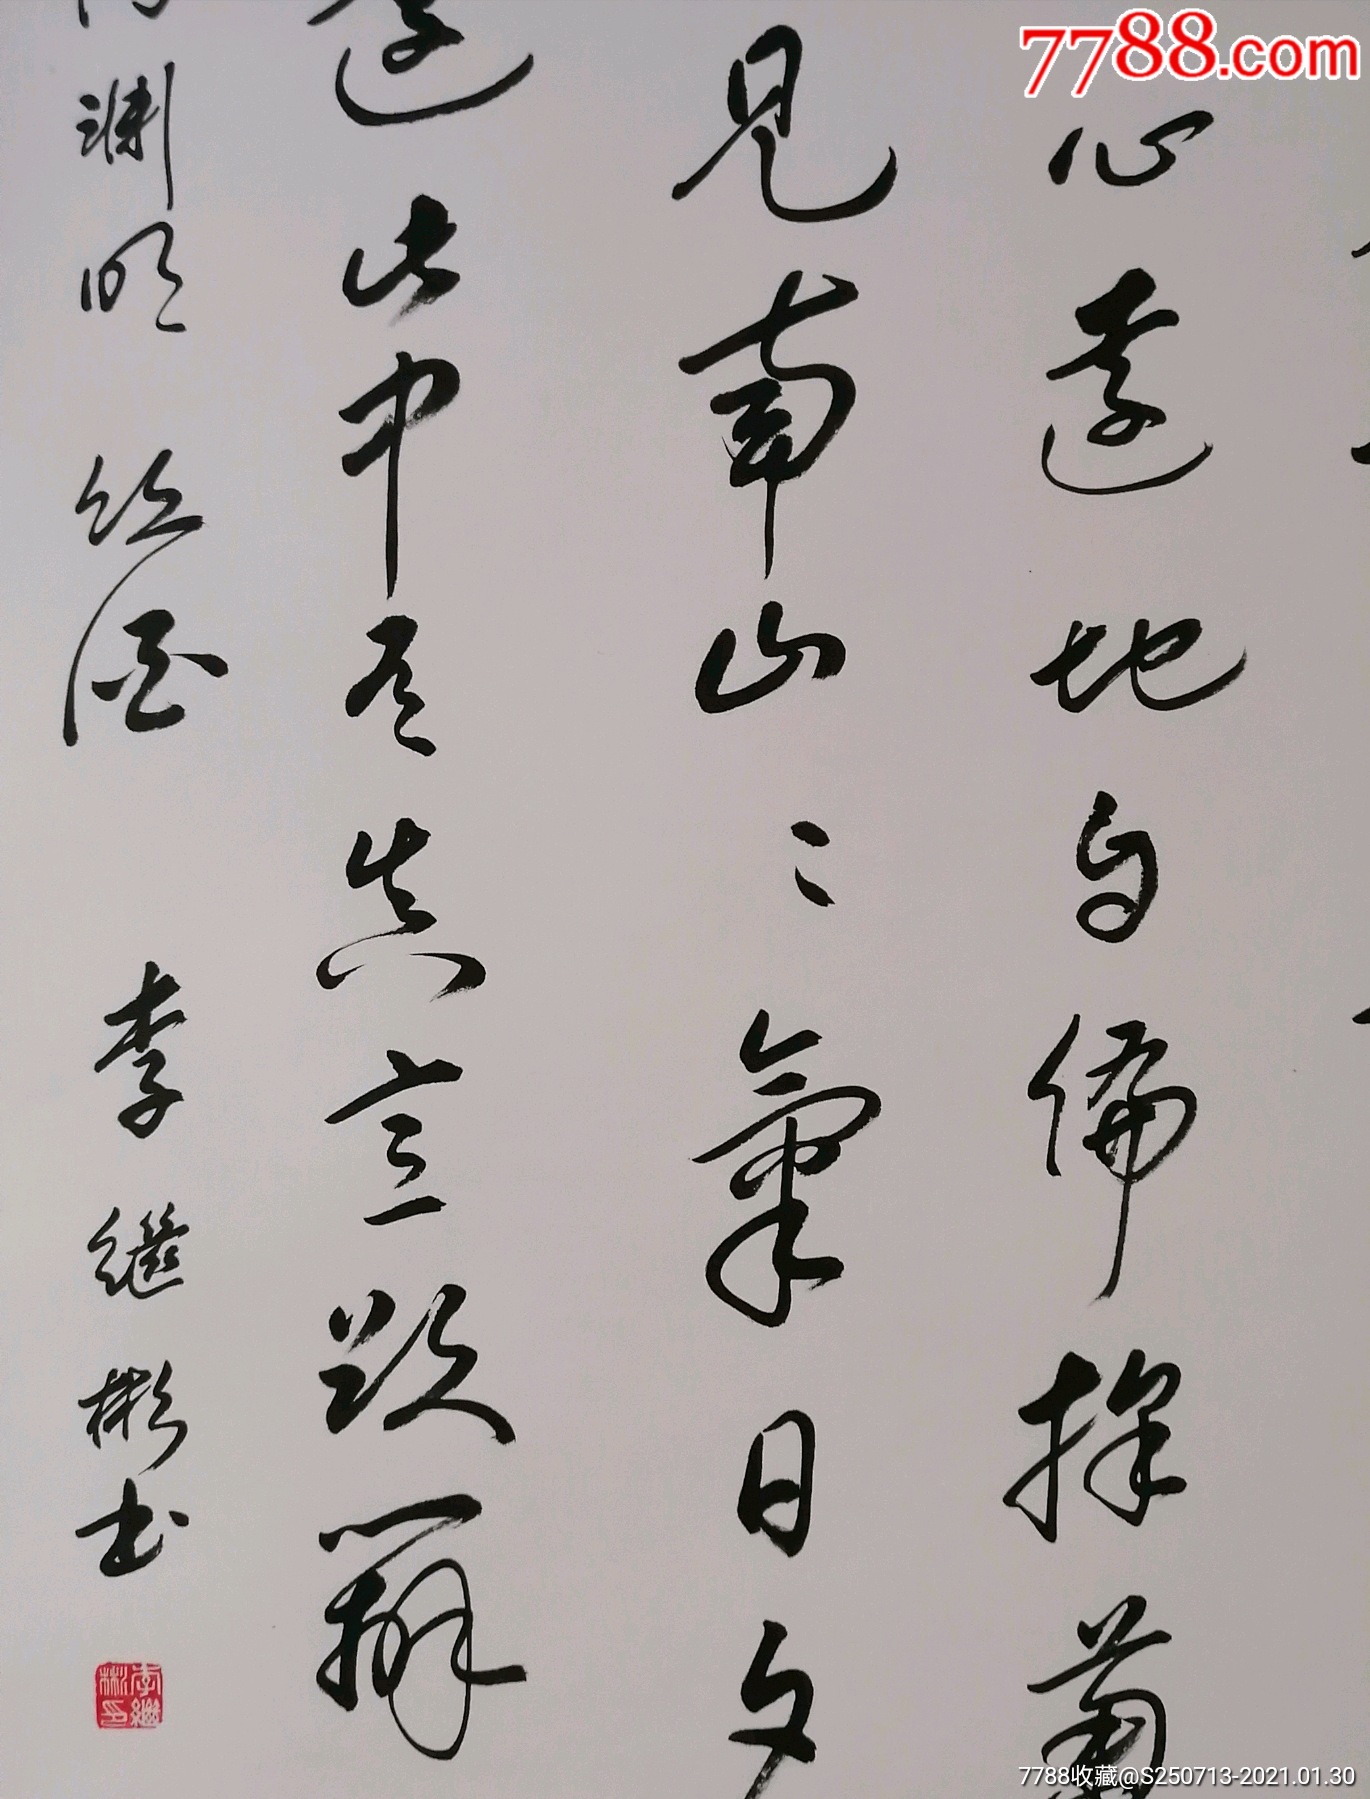 7788.com
心遠地自偏採菊
見南山〻氣日夕
還此中有真意欲辯
淵明 飲酒 李繼彬书
李繼彬印
7788收藏@S250713-2021.01.30